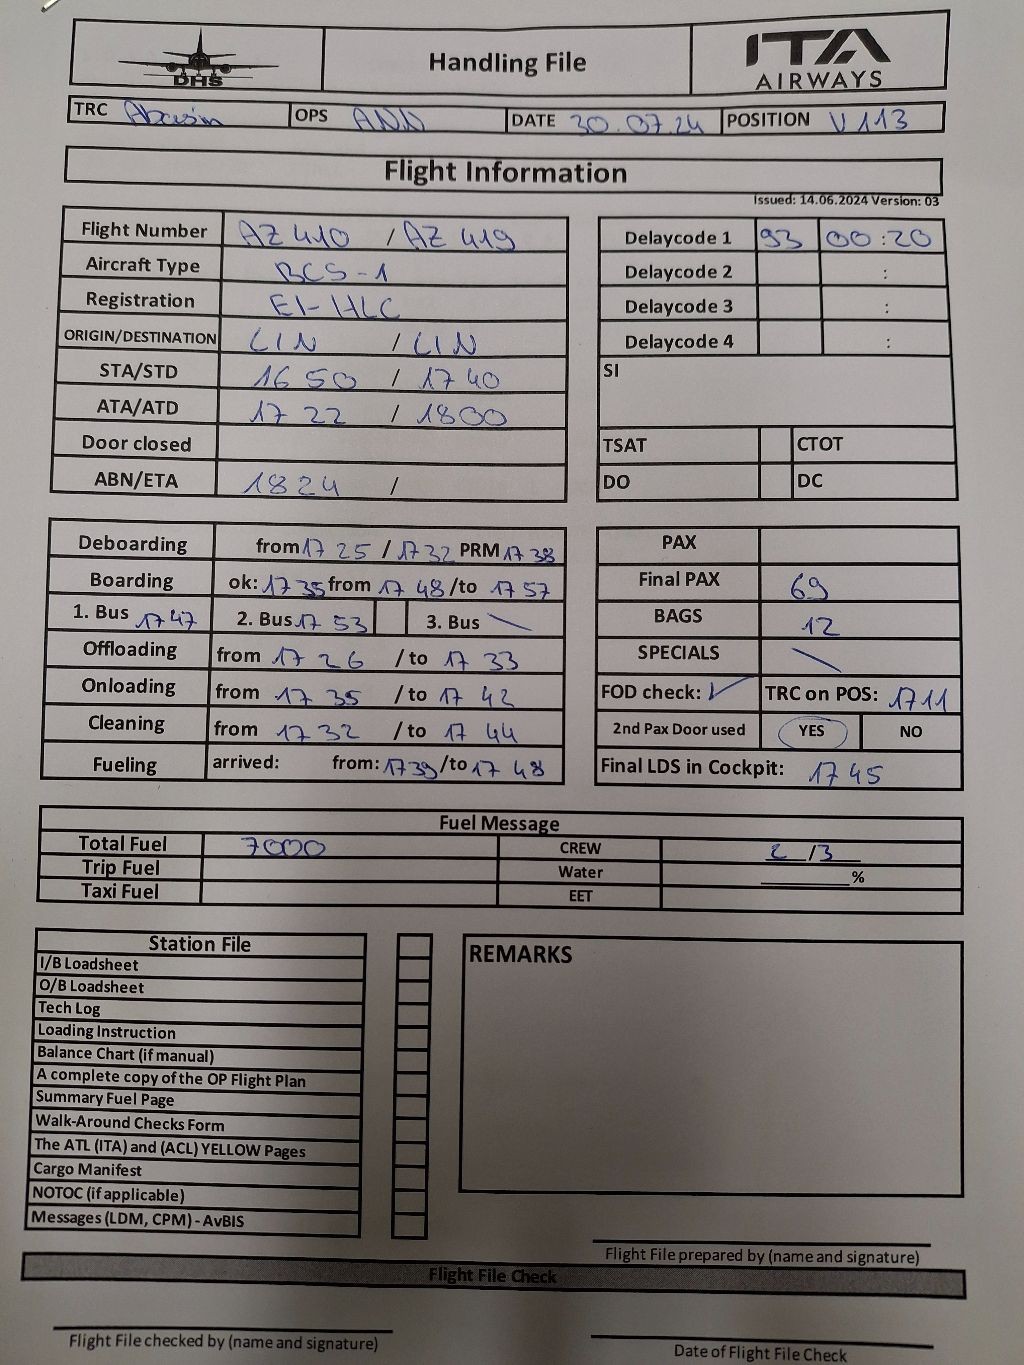 DHS
Handling File
ITA
AIRWAYS
TRC OPS ANN DATE 30.07.24 POSITION V 113
Flight Information
Issued: 14.06.2024 Version: 03
Flight Number AZ 410 / AZ 419
Aircraft Type BCS-1
Registration EI-HLC
ORIGIN/DESTINATION LIN / LIN
STA/STD 16 50 / 17 40
ATA/ATD 17 22 / 1800
Door closed
ABN/ETA 18 24 /
Delaycode 1 93 00:20
Delaycode 2 :
Delaycode 3 :
Delaycode 4 :
SI
TSAT CTOT
DO DC
Deboarding from 17 25 / 17 32 PRM 17 38
Boarding ok: 17 35 from 17 48 /to 17 57
1. Bus 17 47 2. Bus 17 53 3. Bus \
Offloading from 17 26 /to 17 33
Onloading from 17 35 /to 17 42
Cleaning from 17 32 /to 17 44
Fueling arrived: from: 1739 /to 17 48
PAX
Final PAX 69
BAGS 12
SPECIALS \
FOD check: ✓ TRC on POS: 1711
2nd Pax Door used YES NO
Final LDS in Cockpit: 17 45
Fuel Message
Total Fuel 7000 CREW 2 /3
Trip Fuel Water ______%
Taxi Fuel EET
Station File
I/B Loadsheet
O/B Loadsheet
Tech Log
Loading Instruction
Balance Chart (if manual)
A complete copy of the OP Flight Plan
Summary Fuel Page
Walk-Around Checks Form
The ATL (ITA) and (ACL) YELLOW Pages
Cargo Manifest
NOTOC (if applicable)
Messages (LDM, CPM) - AvBIS
REMARKS
Flight File prepared by (name and signature)
Flight File Check
Flight File checked by (name and signature)
Date of Flight File Check